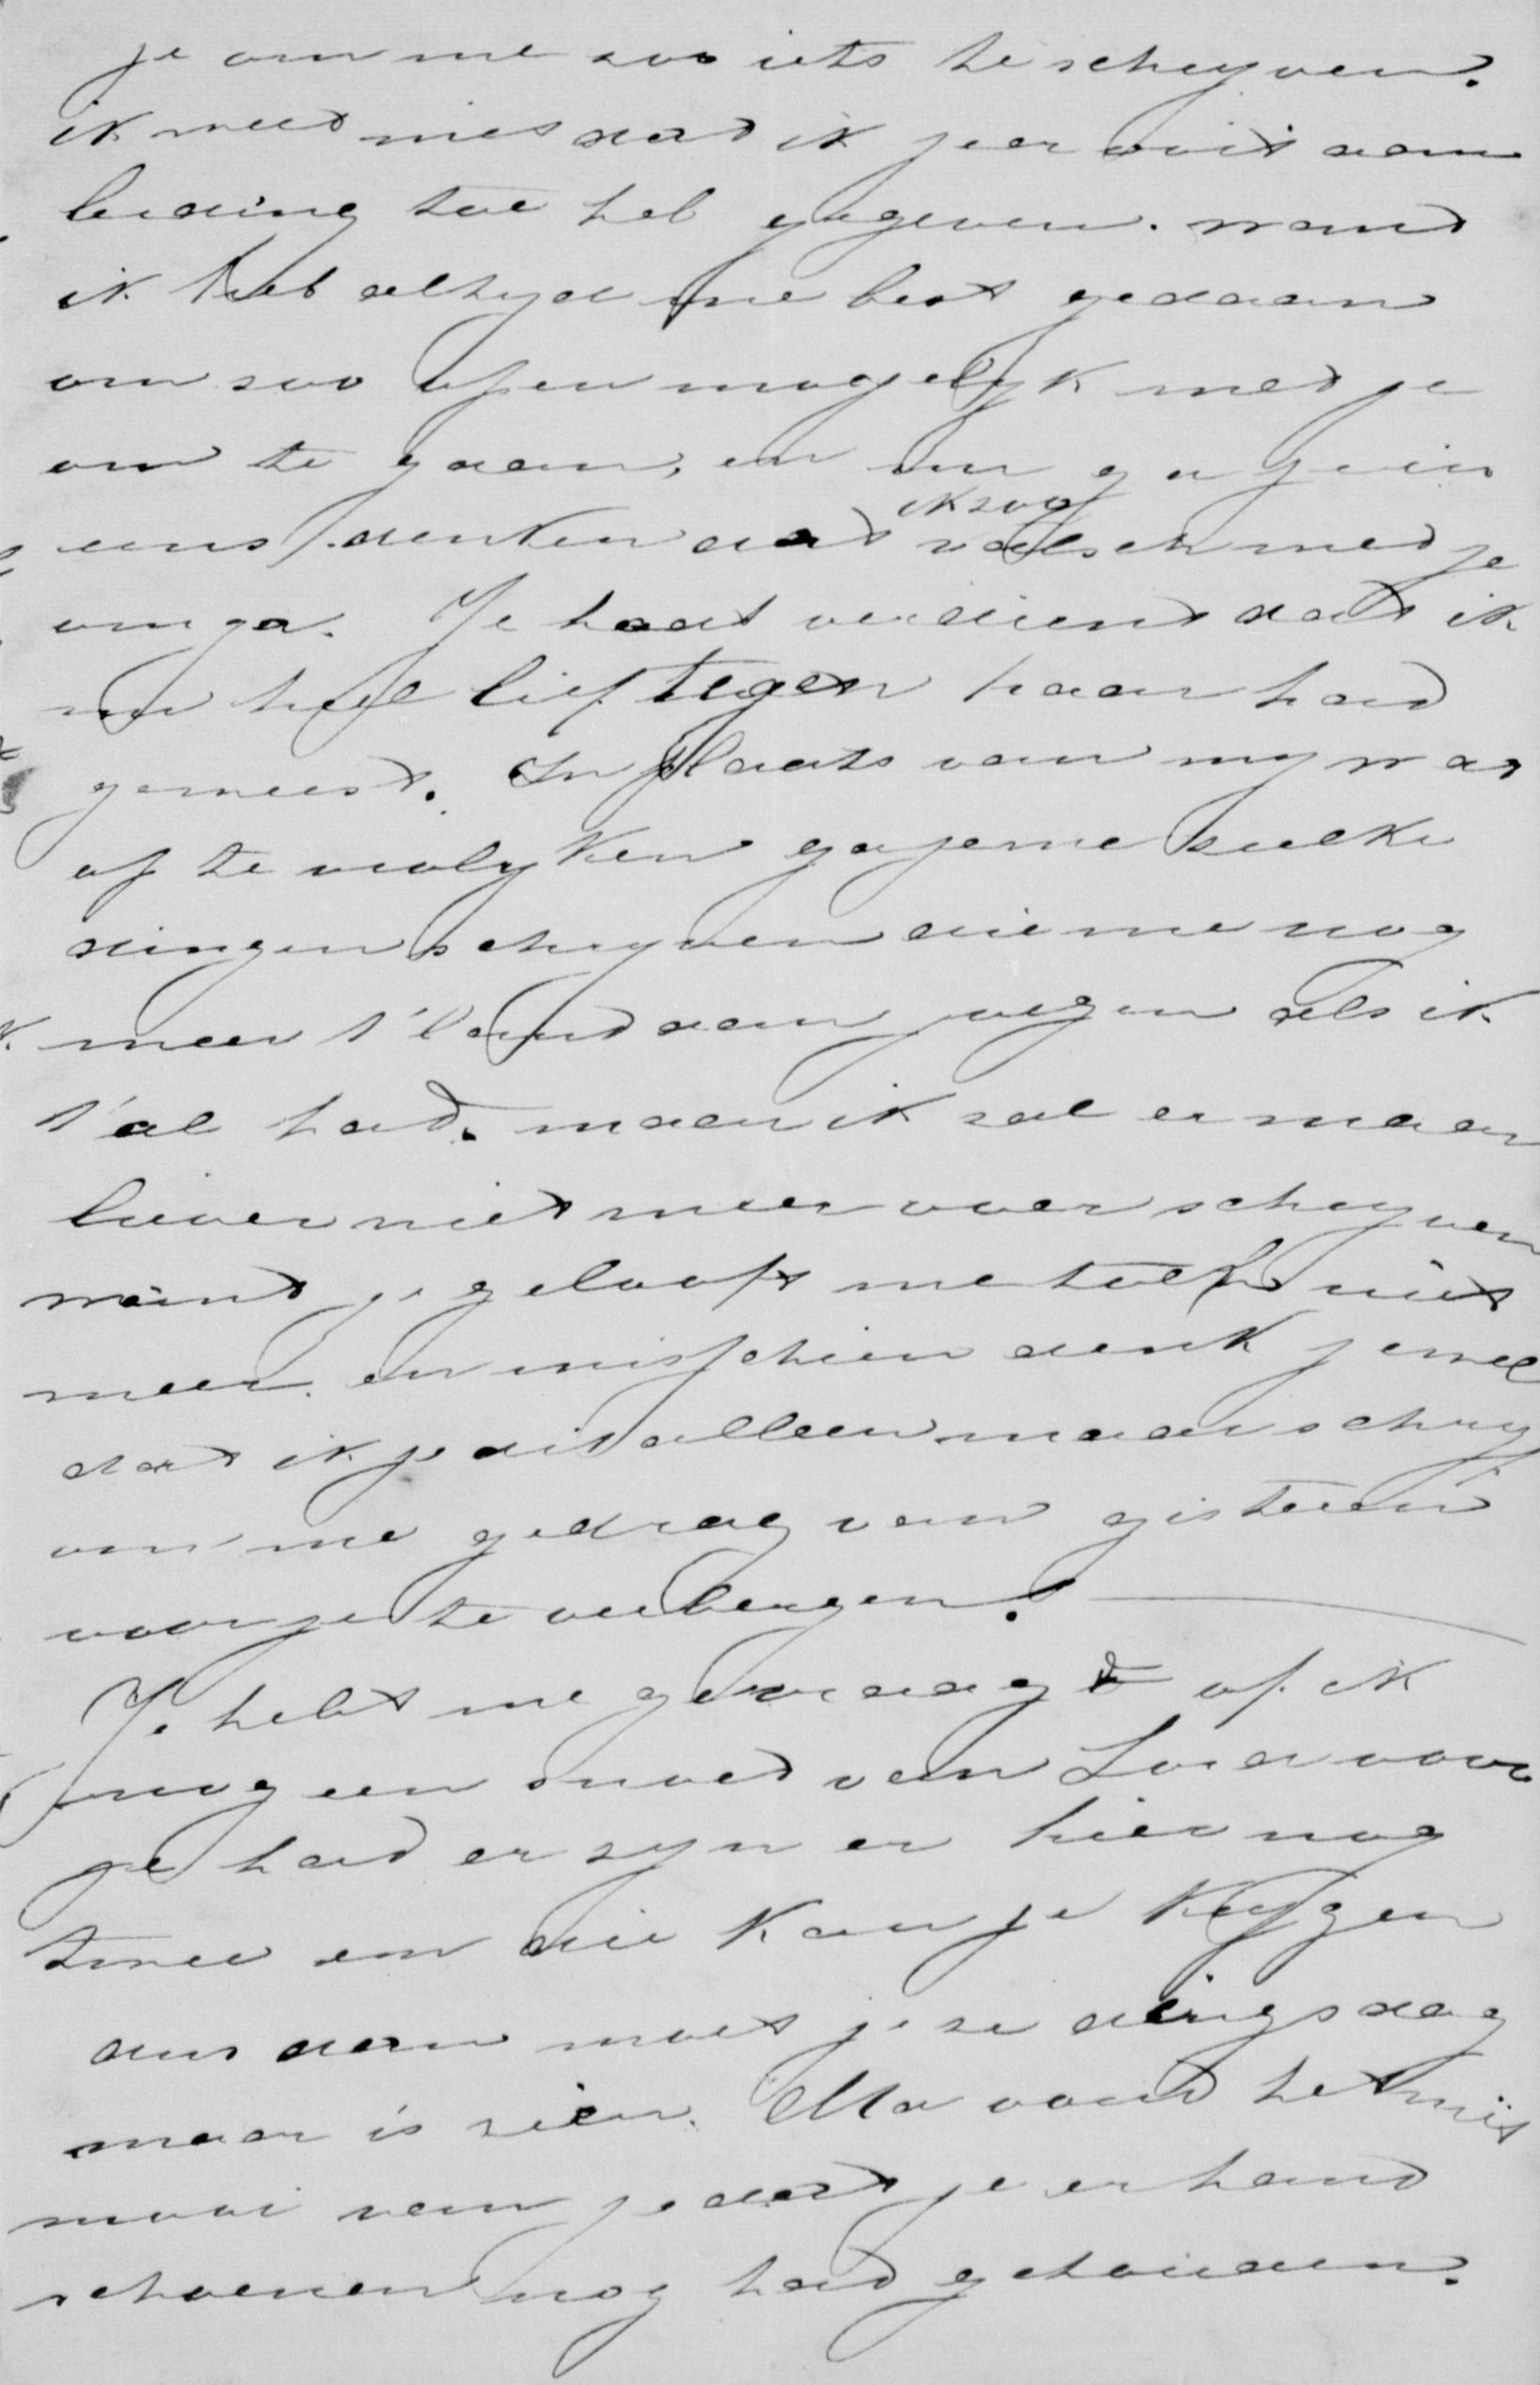 je om me soo iets te schryven.
ik weet niet dat ik je er ooit aan
leiding toe heb gegeven. want
ik heb altyd me best gedaan
om soo open mogelyk met je
om te gaan, en nu ga je in
eens denken dat ik soo valsch met je
omga. Je haat verdient dat ik
nu heel lief tegen haar had
geweest. In plaats van my wat
op te vrolyken ga je me sulke
dingen schryven die me nog
meer t'land aan jagen als ik
t'al had. maar ik sal er maar
liever niet meer over schryven
want je gelooft me toch niet
meer. en misschien denk je wel
dat ik je dit alleen maar schryf
om me gedrag van gisteren
voor je te verbergen.
Je hebt me gevraagd of ik
nog een snoet van Loe voor
je had er syn er hier nog
twee en die kan je krygen
dus dan moet je se dingsdag
maar is sien. Ma vond het niet
mooi van je dat je er hand
schoenen nog had gehouden.